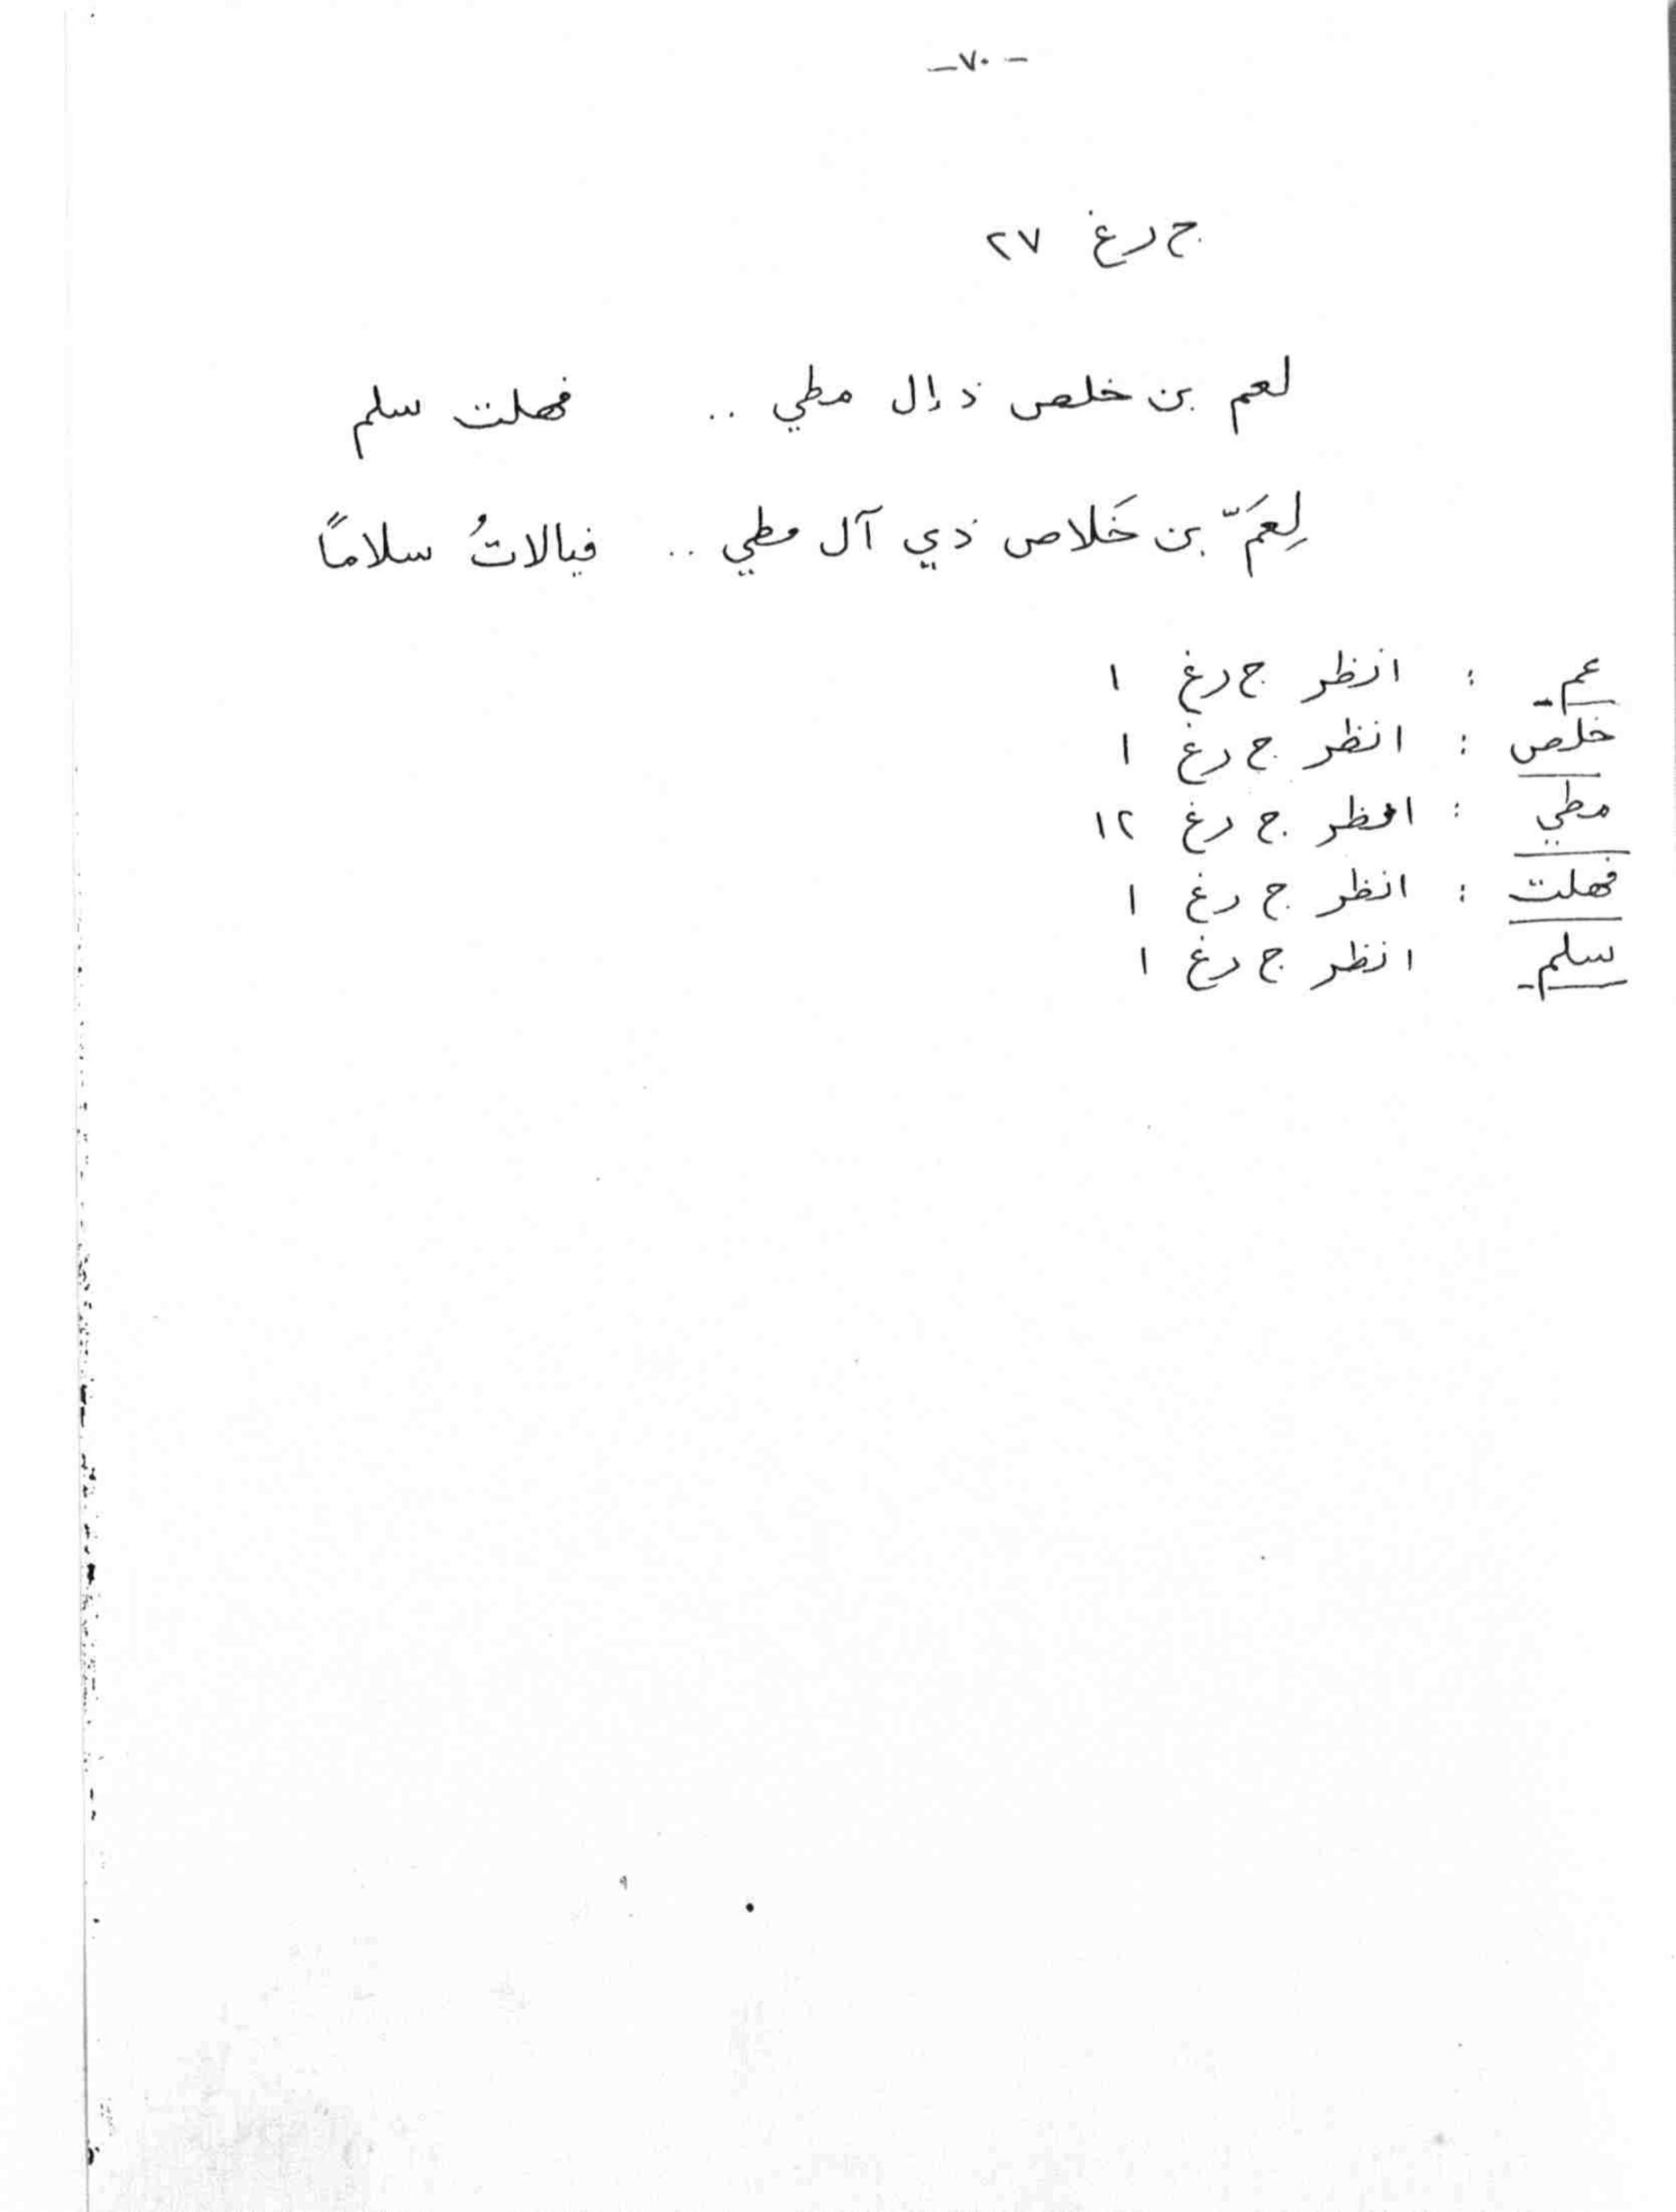 -٧٠-
ج رغ ٢٧
لعم بن خلص ذ إل مطي .. فهلت سلم
لِعَمّ بن خَلاص ذي آل مطي .. فيالاتُ سلاماً
عم : انظر ج رغ ١
خلص : انظر ج رغ ١
مطي : انظر ج رغ ١٢
فهلت : انظر ج رغ ١
سلم انظر ج رغ ١